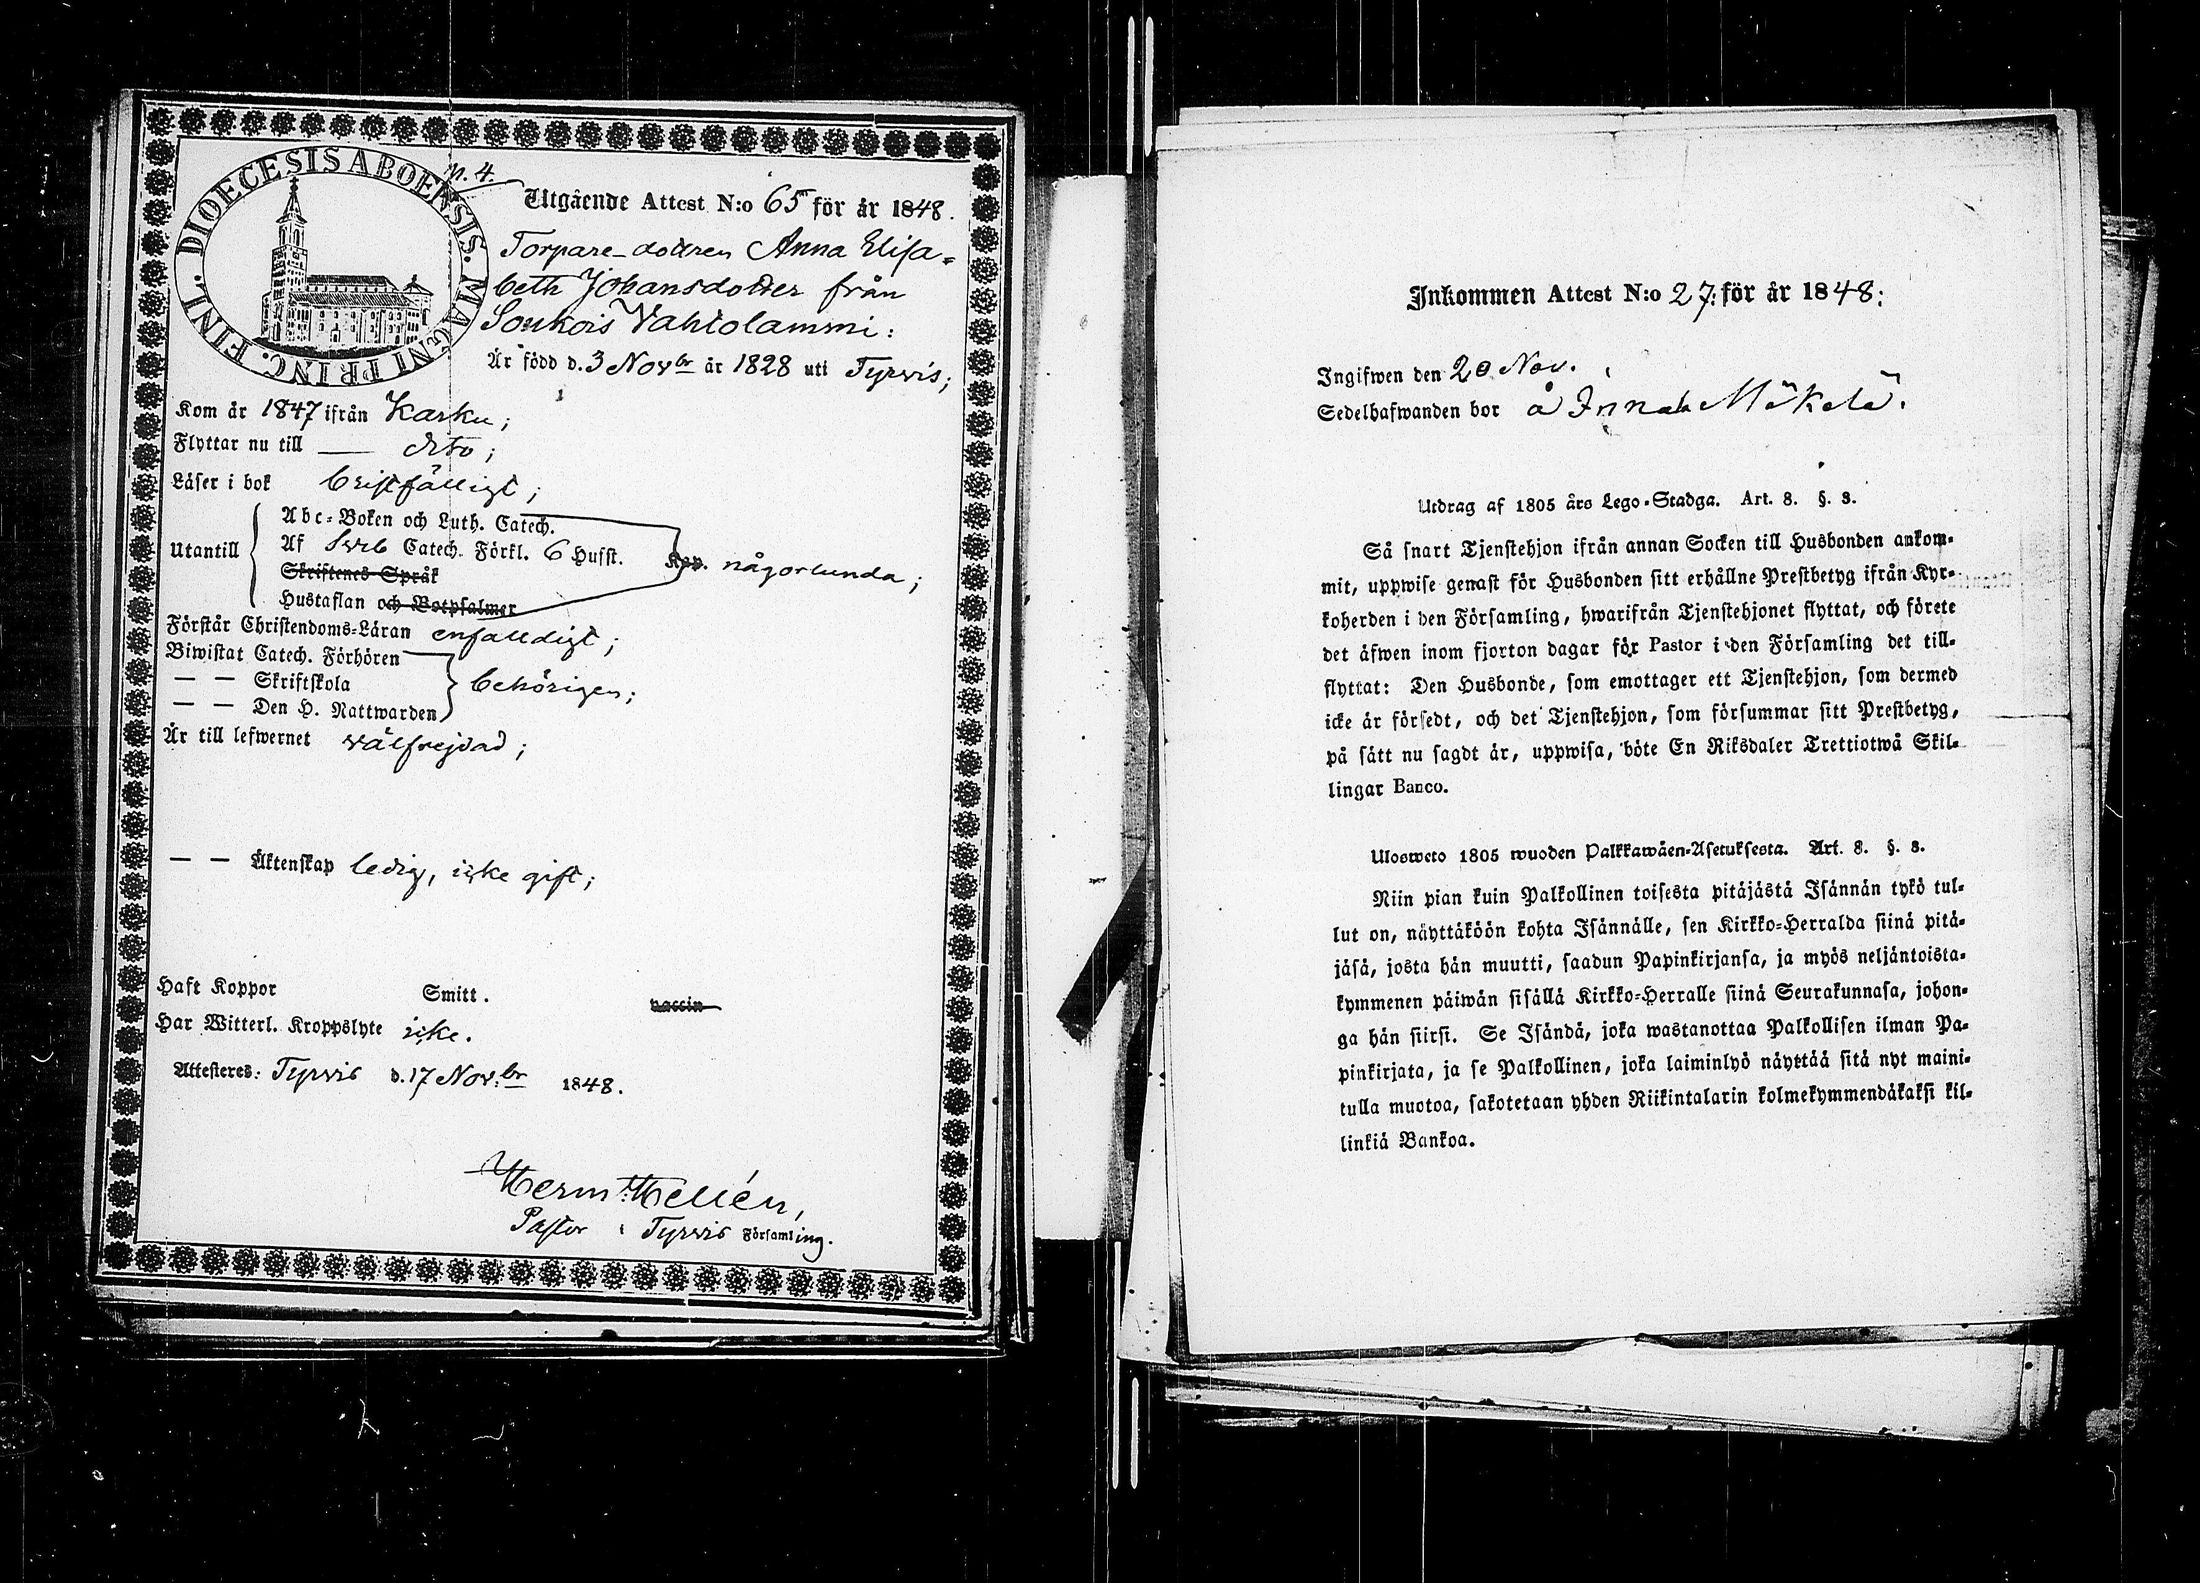 DIOECESIS ABOENSIS. MAGNI PRINC. FINL.
p. 4.
Utgående Attest N:o 65 för år 1848.
Torpare-dottren Anna Elisa-
beth Johansdotter från
Soukois Vahtolammi:
Är född d. 3 Novbr år 1828 uti Tyrvis;
Kom år 1847 ifrån Karku;
Flyttar nu till — dito;
Läser i bok bristfälligt;
Utantill
Abc-Boken och Luth. Catech.
Af Sveb Catech. Förkl. 6 Hufst.
Skriftenes Språk
Hustaflan och Botpsalmer
någorlunda;
Förstår Christendoms-Läran enfaldigt;
Biwistat Catech. Förhören
— — Skriftskola
— — Den H. Nattwarden
behörigen;
Är till lefwernet välfrejdad;
— — Äktenskap ledig, icke gift;
Haft Koppor Smitt. vaccin
Har Witterl. Kroppslyte icke.
Attesteres: Tyrvis d. 17 Nov:br 1848.
Herm: Hellén,
Pastor i Tyrvis Församling.
Inkommen Attest N:o 27: för år 1848;
Ingifwen den 20 Nov.
Sedelhafwanden bor å Mäkelä.
Utdrag af 1805 års Lego-Stadga. Art. 8. §. 8.
Så snart Tjenstehjon ifrån annan Socken till Husbonden ankom-
mit, uppwise genast för Husbonden sitt erhållne Prestbetyg ifrån Kyr-
koherden i den Församling, hwarifrån Tjenstehjonet flyttat, och förete
det äfwen inom fjorton dagar för Pastor i den Församling det till-
flyttat: Den Husbonde, som emottager ett Tjenstehjon, som dermed
icke är försedt, och det Tjenstehjon, som försummar sitt Prestbetyg,
på sätt nu sagdt är, uppwisa, böte En Riksdaler Trettiotwå Skil-
lingar Banco.
Ulosweto 1805 wuoden Palkkawäen-Asetuksesta. Art. 8. §. 8.
Niin pian kuin Palkollinen toisesta pitäjästä Isännän tykö tul-
lut on, näyttäköön kohta Isännälle, sen Kirkko-Herralda siinä pitä-
jäsä, josta hän muutti, saadun Papinkirjansa, ja myös neljäntoista-
kymmenen päiwän sisällä Kirkko-Herralle siinä Seurakunnasa, johon-
ga hän siirsi. Se Isändä, joka wastanottaa Palkollisen ilman Pa-
pinkirjata, ja se Palkollinen, joka laiminlyö näyttää sitä nyt maini-
tulla muotoa, sakotetaan yhden Riikintalarin kolmekymmendäkaksi kil-
linkiä Bankoa.